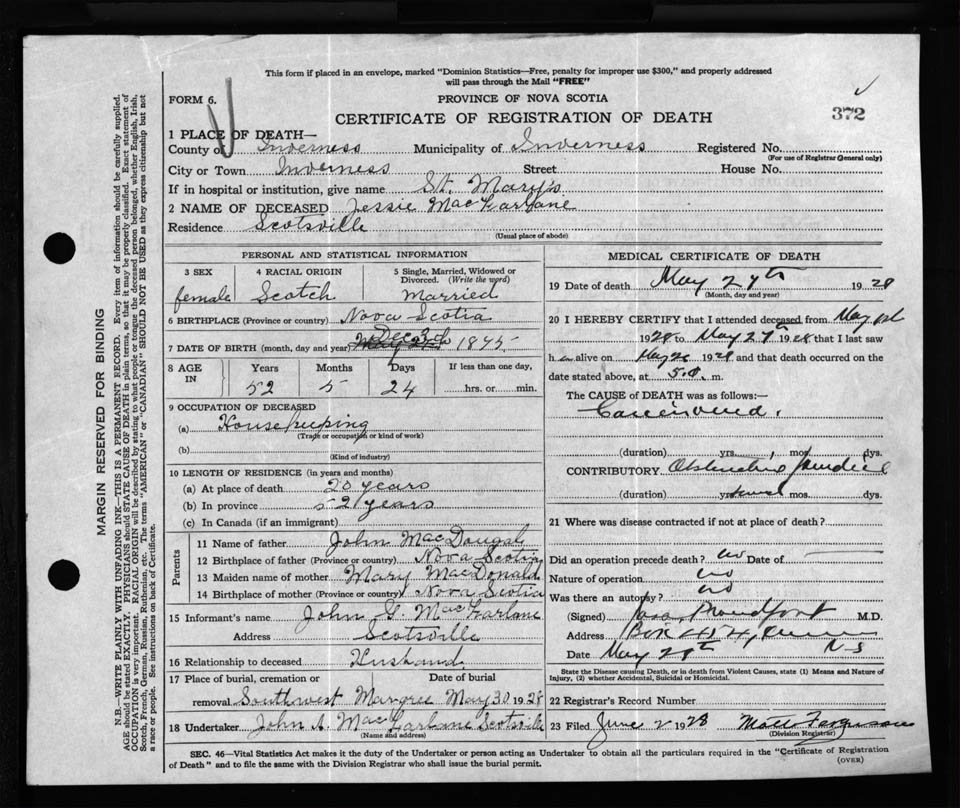 This form if placed in an envelope, marked "Dominion Statistics—Free, penalty for improper use $300," and properly addressed
will pass through the Mail "FREE"
FORM 6.
PROVINCE OF NOVA SCOTIA
372
CERTIFICATE OF REGISTRATION OF DEATH
1 PLACE OF DEATH—
County of Inverness Municipality of Inverness Registered No.
(For use of Registrar General only)
City or Town Inverness Street House No.
If in hospital or institution, give name St. Mary's
2 NAME OF DECEASED Jessie MacFarlane
Residence Scotsville
(Usual place of abode)
PERSONAL AND STATISTICAL INFORMATION
3 SEX 4 RACIAL ORIGIN 5 Single, Married, Widowed or Divorced. (Write the word)
female Scotch Married
6 BIRTHPLACE (Province or country) Nova Scotia
7 DATE OF BIRTH (month, day and year) Dec 3rd 1875
8 AGE IN Years Months Days If less than one day,
52 5 24 hrs. or min.
9 OCCUPATION OF DECEASED
(a) Housekeeping
(Trade or occupation or kind of work)
(b)
(Kind of industry)
10 LENGTH OF RESIDENCE (in years and months)
(a) At place of death 20 years
(b) In province 52 years
(c) In Canada (if an immigrant)
Parents
11 Name of father John MacDougal
12 Birthplace of father (Province or country) Nova Scotia
13 Maiden name of mother Mary MacDonald
14 Birthplace of mother (Province or country) Nova Scotia
15 Informant's name John G. MacFarlane
Address Scotsville
16 Relationship to deceased Husband
17 Place of burial, cremation or Date of burial
removal Southwest Margree May 30 1928
18 Undertaker John A. MacFarlane Scotsville
(Name and address)
MEDICAL CERTIFICATE OF DEATH
19 Date of death May 27th 1928
(Month, day and year)
20 I HEREBY CERTIFY that I attended deceased from May 1st
1928 to May 27th 1928 that I last saw
h er alive on May 26 1928 and that death occurred on
date stated above, at 5 a. m.
The CAUSE OF DEATH was as follows:—
Carcinoma.
(duration) yrs. mos. dys.
CONTRIBUTORY Obstructive Jaundice
(duration) yrs. mos. dys.
21 Where was disease contracted if not at place of death?
Did an operation precede death? no Date of
Nature of operation no
Was there an autopsy? no
(Signed) Proudfoot M.D.
Address Box 474, N-S
Date May 29th
State the Disease causing Death, or in death from Violent Causes, state (1) Means and Nature of
Injury, (2) whether Accidental, Suicidal or Homicidal.
22 Registrar's Record Number
23 Filed June 2 1928
(Division Registrar)
SEC. 46—Vital Statistics Act makes it the duty of the Undertaker or person acting as Undertaker to obtain all the particulars required in the "Certificate of Registration
of Death" and to file the same with the Division Registrar who shall issue the burial permit.
(OVER)
MARGIN RESERVED FOR BINDING
N.B.—WRITE PLAINLY WITH UNFADING INK—THIS IS A PERMANENT RECORD. Every item of information should be carefully supplied.
AGE should be stated EXACTLY. PHYSICIANS should STATE CAUSE OF DEATH in plain terms, so that it may be properly classified. Exact statement of
OCCUPATION is very important. RACIAL ORIGIN will be described by stating to what people or tongue the deceased person belonged, whether English, Irish,
Scotch, French, German, Russian, Ruthenian, etc. The terms "AMERICAN" or "CANADIAN" SHOULD NOT BE USED as they express citizenship but not
a race or people. See instructions on back of Certificate.